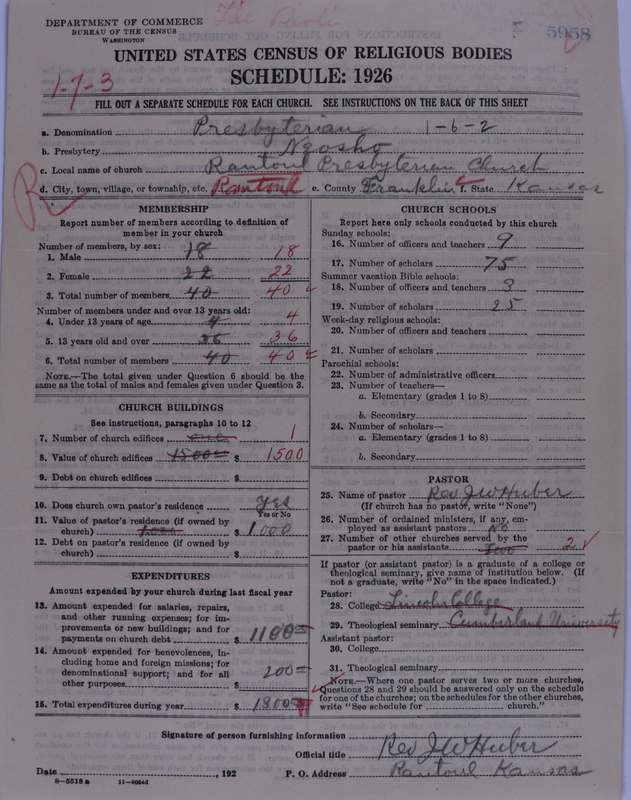 DEPARTMENT OF COMMERCE
BUREAU OF THE CENSUS
WASHINGTON
5958
UNITED STATES CENSUS OF RELIGIOUS BODIES
SCHEDULE: 1926
1-7-3
FILL OUT A SEPARATE SCHEDULE FOR EACH CHURCH. SEE INSTRUCTIONS ON THE BACK OF THIS SHEET
a. Denomination Presbyterian 1-6-2
b. Presbytery Neosho
c. Local name of church Rantoul Presbyterian Church
d. City, town, village, or township, etc. Rantoul e. County Franklin f. State Kansas
MEMBERSHIP
Report number of members according to definition of
member in your church
Number of members, by sex:
1. Male 18 18
2. Female 22 22
3. Total number of members 40 40
Number of members under and over 13 years old:
4. Under 13 years of age 4 4
5. 13 years old and over 36 36
6. Total number of members 40 40
NOTE.—The total given under Question 6 should be
same as the total of males and females given under Question 3.
CHURCH BUILDINGS
See instructions, paragraphs 10 to 12
7. Number of church edifices one 1
8. Value of church edifices 1500 $ 1500
9. Debt on church edifices $
10. Does church own pastor's residence yes
Yes or No
11. Value of pastor's residence (if owned by
church) 1000 $ 1000
12. Debt on pastor's residence (if owned by
church) $
EXPENDITURES
Amount expended by your church during last fiscal year
13. Amount expended for salaries, repairs,
and other running expenses; for im-
provements or new buildings; and for
payments on church debt $ 1100
14. Amount expended for benevolences, in-
cluding home and foreign missions; for
denominational support; and for all
other purposes $ 200
15. Total expenditures during year $ 1300
CHURCH SCHOOLS
Report here only schools conducted by this church
Sunday schools:
16. Number of officers and teachers 9
17. Number of scholars 75
Summer vacation Bible schools:
18. Number of officers and teachers 3
19. Number of scholars 25
Week-day religious schools:
20. Number of officers and teachers
21. Number of scholars
Parochial schools:
22. Number of administrative officers
23. Number of teachers—
a. Elementary (grades 1 to 8)
b. Secondary
24. Number of scholars—
a. Elementary (grades 1 to 8)
b. Secondary
PASTOR
25. Name of pastor Rev J W Huber
(If church has no pastor, write "None")
26. Number of ordained ministers, if any, em-
ployed as assistant pastors No
27. Number of other churches served by the
pastor or his assistants 2
If pastor (or assistant pastor) is a graduate of a college or
theological seminary, give name of institution below. (If
not a graduate, write "No" in the space indicated.)
Pastor:
28. College Lincoln College
29. Theological seminary Cumberland University
Assistant pastor:
30. College
31. Theological seminary
NOTE.—Where one pastor serves two or more churches,
Questions 28 and 29 should be answered only on the schedule
for one of the churches; on the schedules for the other churches,
write "See schedule for church."
Signature of person furnishing information
Official title Rev J W Huber
Date , 192 P. O. Address Rantoul Kansas
8-5518 a